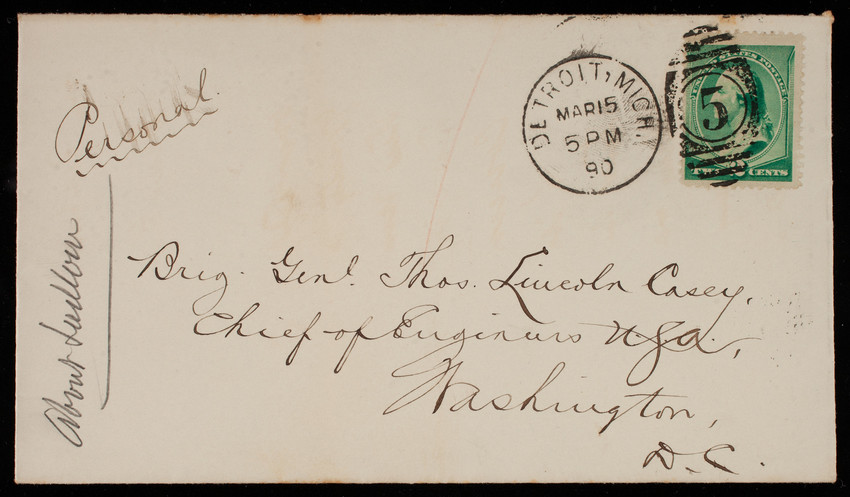 Personal.
About Ludlow
DETROIT, MICH.
MAR 15
5 PM
90
5
UNITED STATES POSTAGE
TWO 2 CENTS
Brig. Genl. Thos. Lincoln Casey,
Chief of Engineers U.S.A.,
Washington,
D.C.